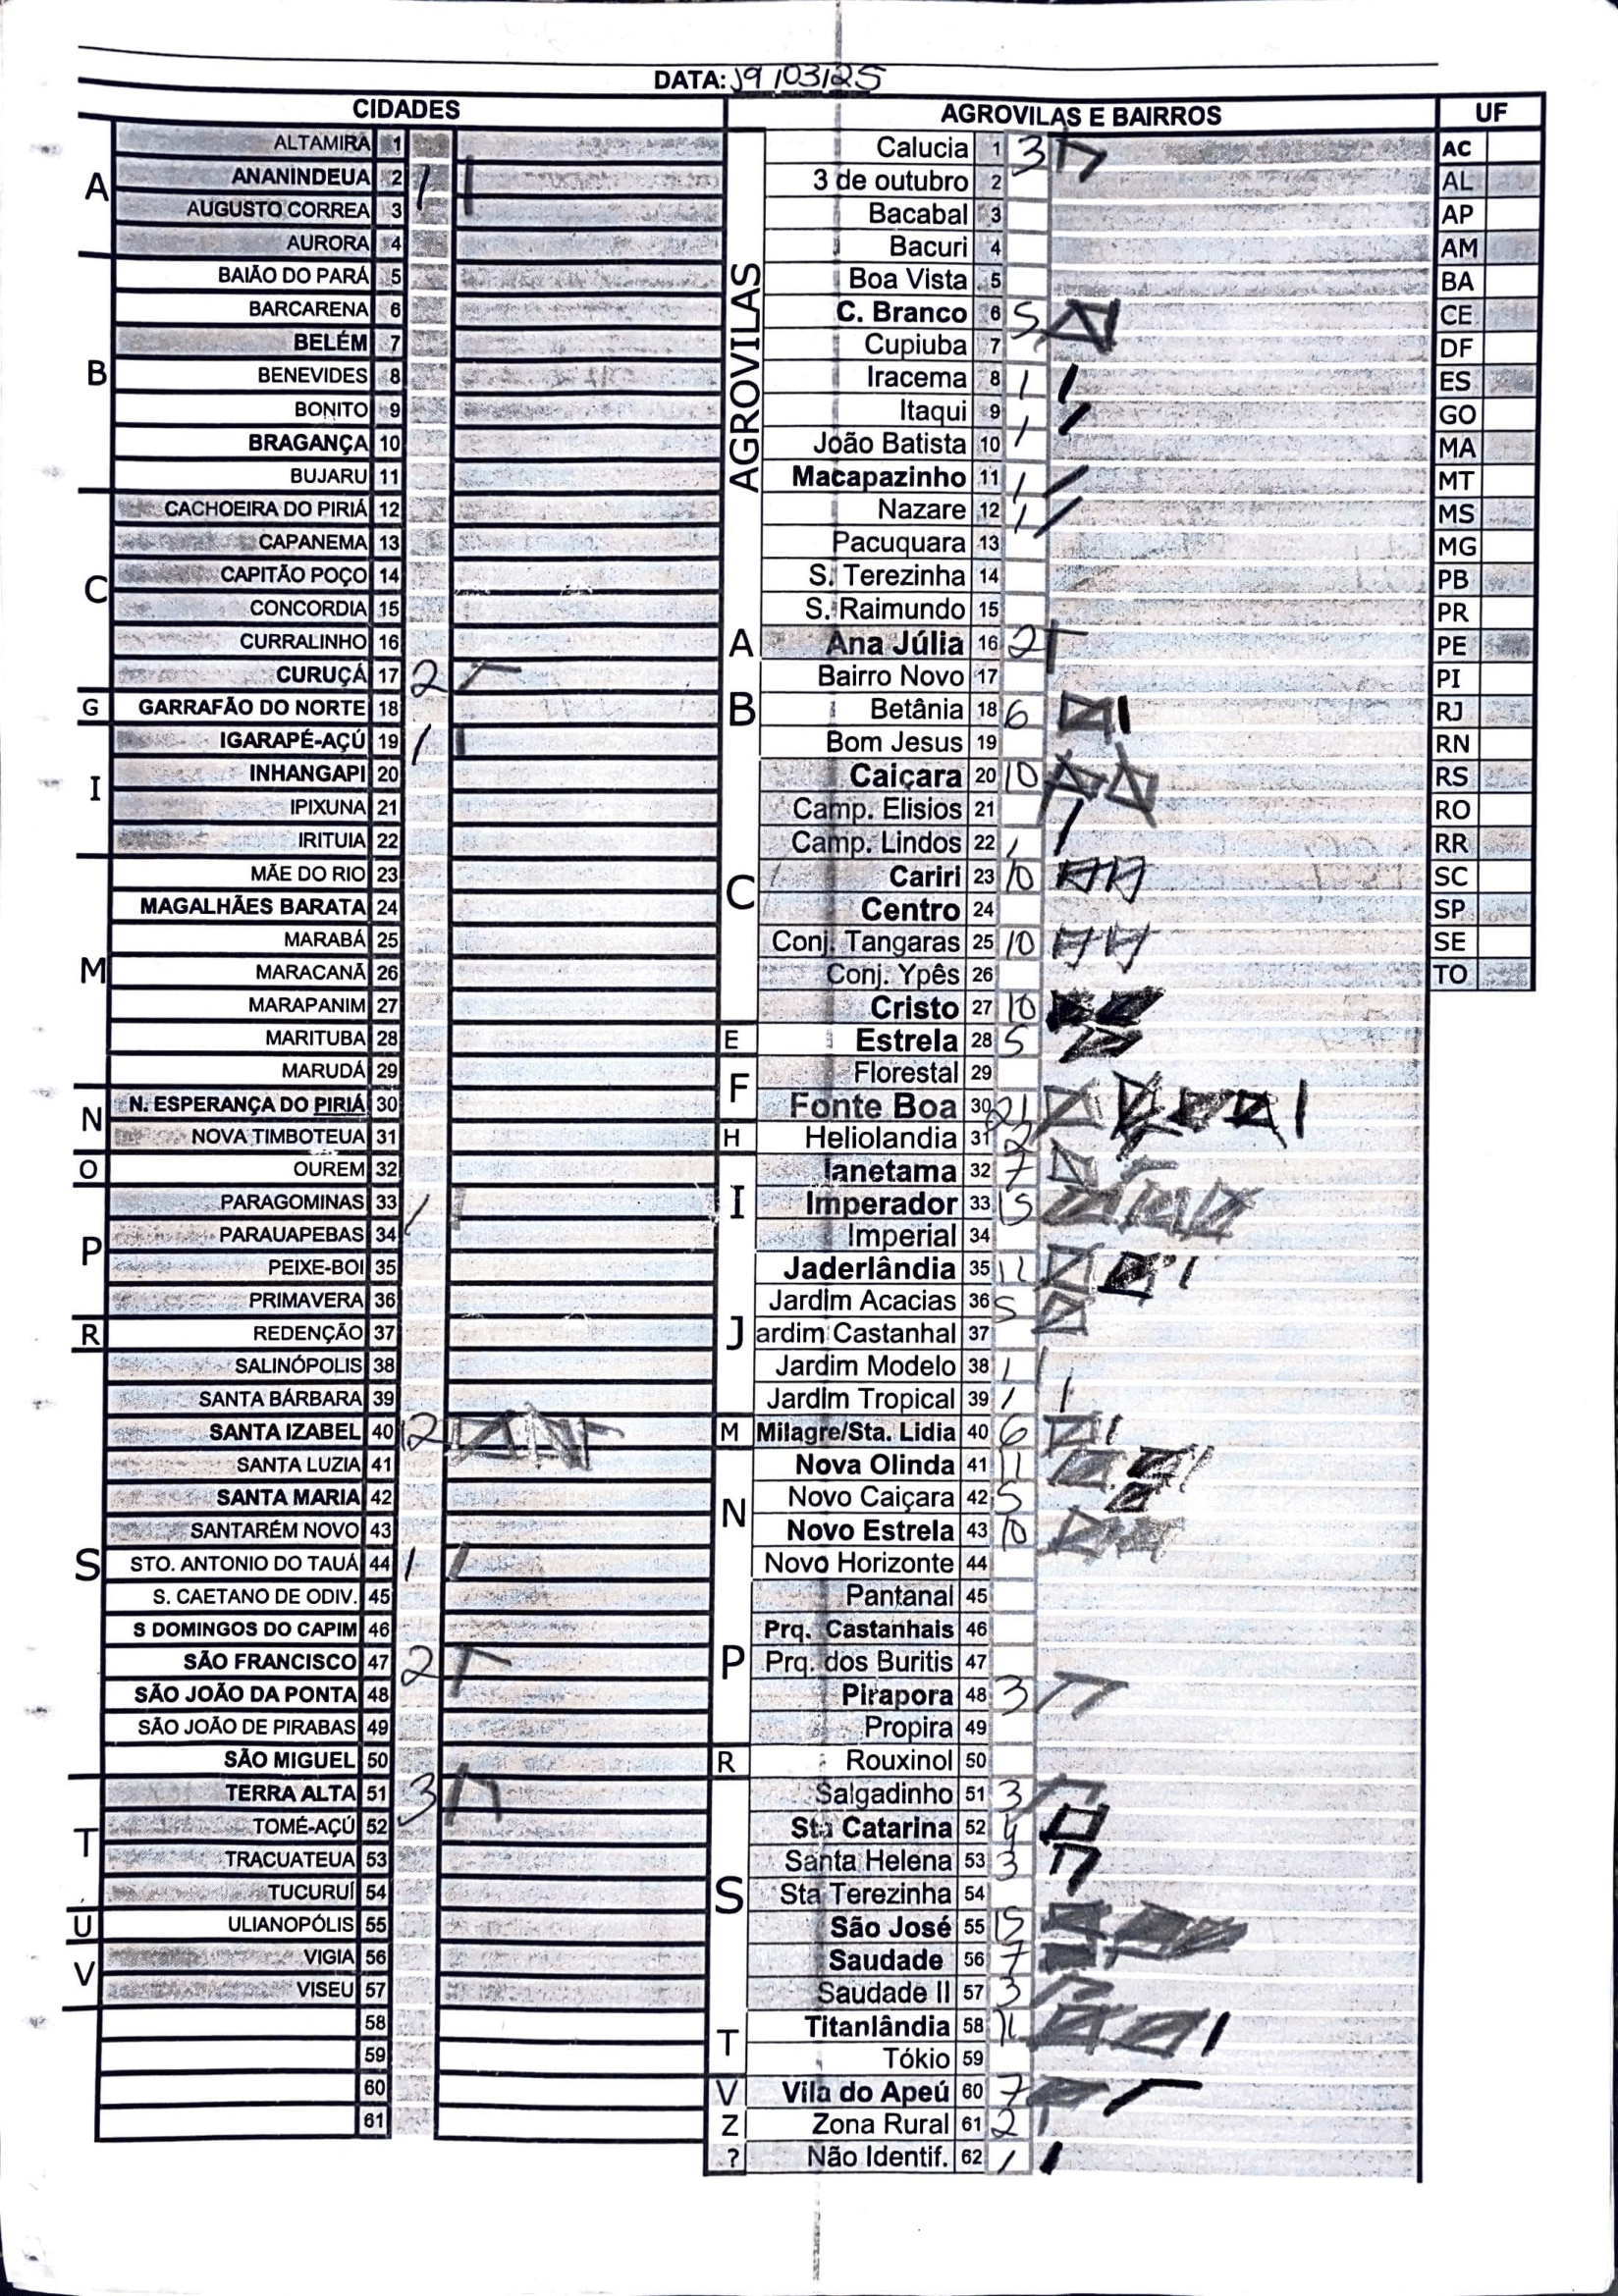 DATA: 19/03/25
CIDADES
A
ALTAMIRA 1
ANANINDEUA 2 1
AUGUSTO CORREA 3
AURORA 4
B
BAIÃO DO PARÁ 5
BARCARENA 6
BELÉM 7
BENEVIDES 8
BONITO 9
BRAGANÇA 10
BUJARU 11
C
CACHOEIRA DO PIRIÁ 12
CAPANEMA 13
CAPITÃO POÇO 14
CONCORDIA 15
CURRALINHO 16
CURUÇÁ 17 2
G
GARRAFÃO DO NORTE 18
I
IGARAPÉ-AÇÚ 19 1
INHANGAPI 20
IPIXUNA 21
IRITUIA 22
M
MÃE DO RIO 23
MAGALHÃES BARATA 24
MARABÁ 25
MARACANÃ 26
MARAPANIM 27
MARITUBA 28
MARUDÁ 29
N
N. ESPERANÇA DO PIRIÁ 30
NOVA TIMBOTEUA 31
O
OUREM 32
P
PARAGOMINAS 33 1
PARAUAPEBAS 34
PEIXE-BOI 35
PRIMAVERA 36
R
REDENÇÃO 37
S
SALINÓPOLIS 38
SANTA BÁRBARA 39
SANTA IZABEL 40 12
SANTA LUZIA 41
SANTA MARIA 42
SANTARÉM NOVO 43
STO. ANTONIO DO TAUÁ 44 1
S. CAETANO DE ODIV. 45
S DOMINGOS DO CAPIM 46
SÃO FRANCISCO 47 2
SÃO JOÃO DA PONTA 48
SÃO JOÃO DE PIRABAS 49
SÃO MIGUEL 50
T
TERRA ALTA 51 3
TOMÉ-AÇÚ 52
TRACUATEUA 53
TUCURUÍ 54
U
ULIANOPÓLIS 55
V
VIGIA 56
VISEU 57
58
59
60
61
AGROVILAS E BAIRROS
AGROVILAS
Calucia 1 3
3 de outubro 2
Bacabal 3
Bacuri 4
Boa Vista 5
C. Branco 6 5
Cupiuba 7
Iracema 8 1
Itaqui 9
João Batista 10 1
Macapazinho 11 1
Nazare 12 1
Pacuquara 13
S. Terezinha 14
S. Raimundo 15
A
Ana Júlia 16 2
B
Bairro Novo 17
Betânia 18 6
Bom Jesus 19
C
Caiçara 20 10
Camp. Elisios 21
Camp. Lindos 22 1
Cariri 23 10
Centro 24
Conj. Tangaras 25 10
Conj. Ypês 26
Cristo 27 10
E
Estrela 28 5
F
Florestal 29
Fonte Boa 30 21
H
Heliolandia 31 2
I
Ianetama 32 7
Imperador 33 15
Imperial 34
J
Jaderlândia 35 11
Jardim Acacias 36 5
ardim Castanhal 37
Jardim Modelo 38 1
Jardim Tropical 39 1
M
Milagre/Sta. Lidia 40 6
N
Nova Olinda 41 11
Novo Caiçara 42 5
Novo Estrela 43 10
Novo Horizonte 44
P
Pantanal 45
Prq. Castanhais 46
Prq. dos Buritis 47
Pirapora 48 3
Propira 49
R
Rouxinol 50
S
Salgadinho 51 3
Sta Catarina 52 4
Santa Helena 53 3
Sta Terezinha 54
São José 55 15
Saudade 56 7
Saudade II 57 3
T
Titanlândia 58 11
Tókio 59
V
Vila do Apeú 60 7
Z
Zona Rural 61 2
?
Não Identif. 62 1
UF
AC
AL
AP
AM
BA
CE
DF
ES
GO
MA
MT
MS
MG
PB
PR
PE
PI
RJ
RN
RS
RO
RR
SC
SP
SE
TO